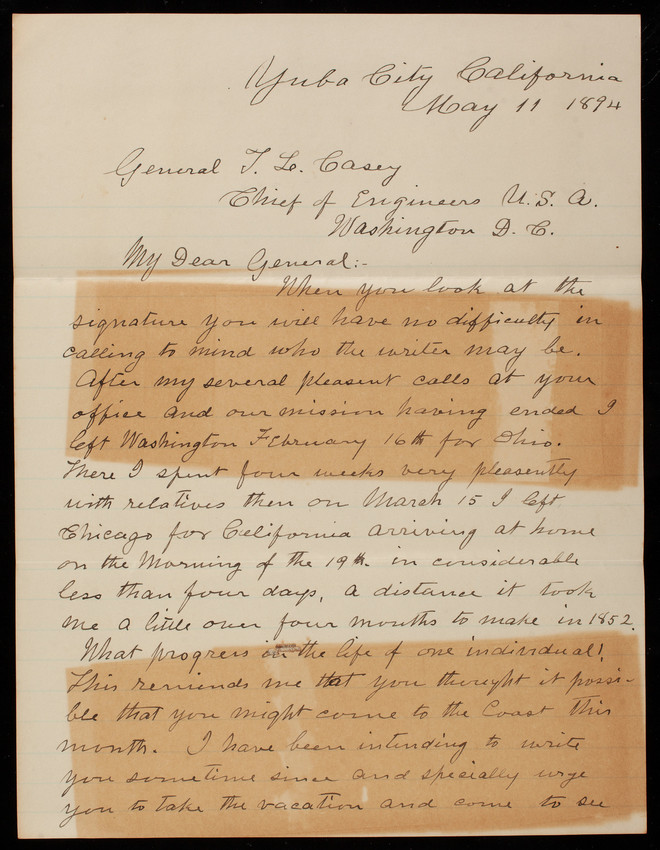 Yuba City California
May 11 1894
General T. L. Casey
Chief of Engineers U. S. A.
Washington D. C.
My Dear General:-
When you look at the
signature you will have no difficulty in
calling to mind who the writer may be.
After my several pleasent calls at your
office and our mission having ended I
left Washington February 16th for Ohio.
There I spent four weeks very pleasently
with relatives then on March 15 I left
Chicago for California arriving at home
on the Morning of the 19th. in considerable
less than four days, a distance it took
me a little over four months to make in 1852.
What progress in the life of one individual!
This reminds me that you thought it possi-
ble that you might come to the Coast this
month. I have been intending to write
you sometime since and specially urge
you to take the vacation and come to see